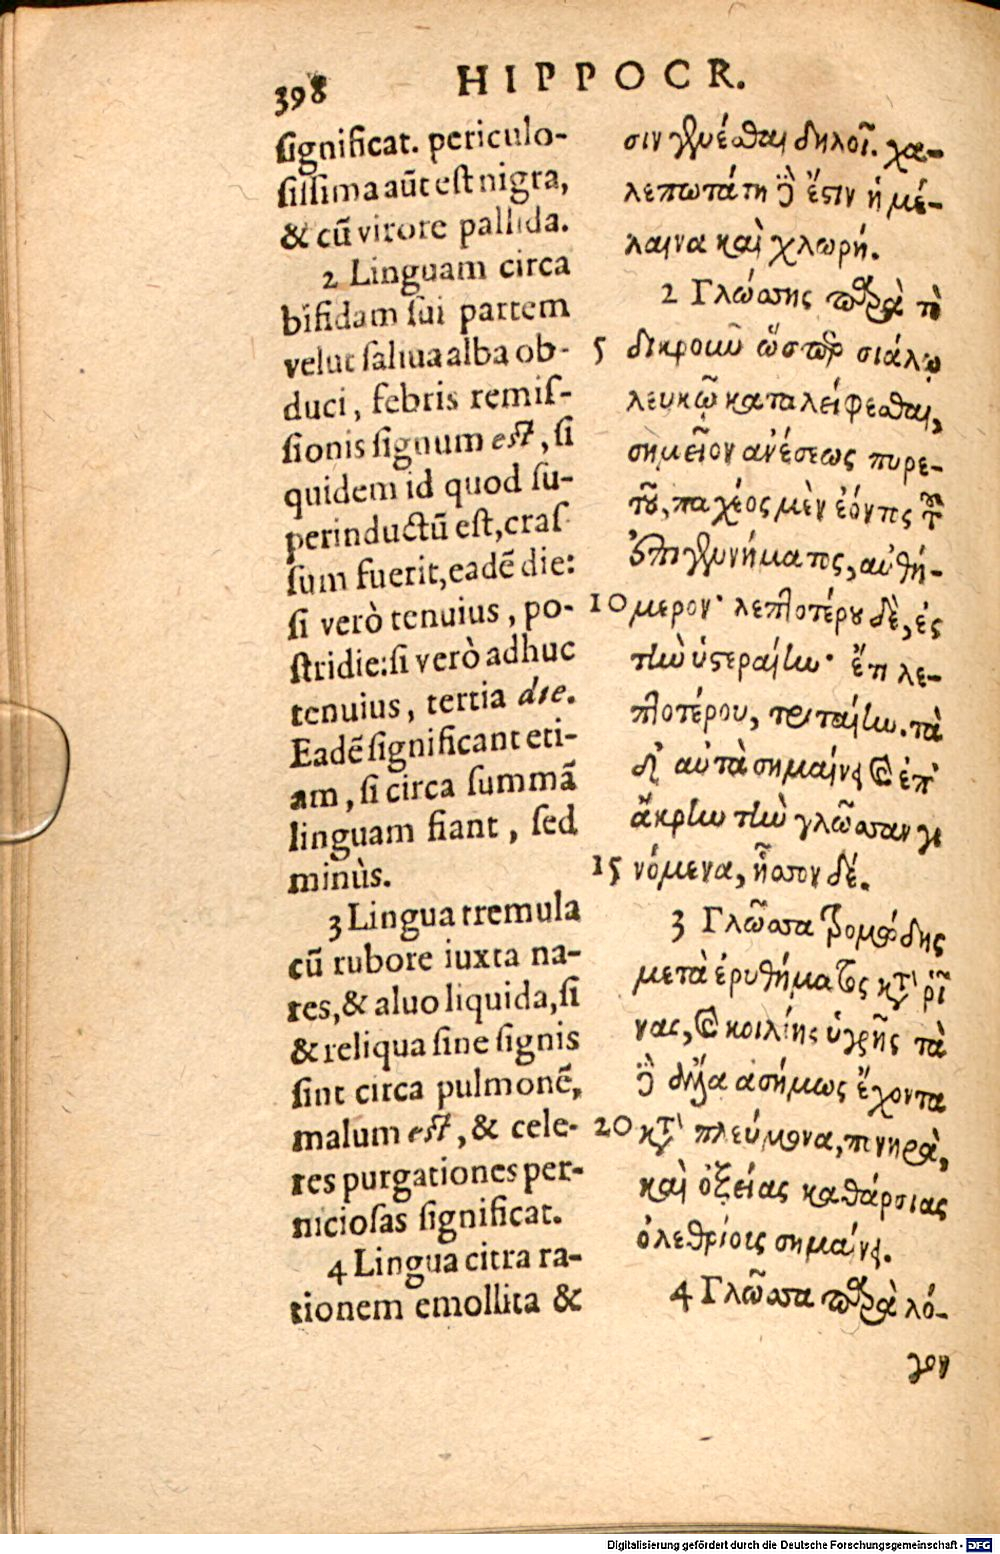 398 HIPPOCR.
significat. periculo-
sissima aūt est nigra,
& cū virore pallida.
2 Linguam circa
bifidam sui partem
velut saliua alba ob-
duci, febris remis-
sionis signum est, si
quidem id quod su-
perinductū est, cras
sum fuerit, eadē die:
si verò tenuius, po-
stridie: si verò adhuc
tenuius, tertia die.
Eadē significant eti-
am, si circa summā
linguam fiant, sed
minùs.
3 Lingua tremula
cū rubore iuxta na-
res, & aluo liquida, si
& reliqua sine signis
sint circa pulmonē,
malum est, & cele-
res purgationes per-
niciosas significat.
4 Lingua citra ra-
tionem emollita &
σιν γενέσθαι δηλοῖ. χα-
λεπωτάτη δὲ ἔστιν ἡ μέ-
λαινα καὶ χλωρή.
2 Γλώσσης παρὰ τὸ
5 δίκροιον ὥσπερ σιάλῳ
λευκῷ καταλείφεσθαι,
σημεῖον ἀνέσεως πυρε-
τοῦ, παχέος μὲν ἐόντος τοῦ
ἐπιγεννήματος, αὐθή-
10 μερον· λεπτοτέρου δὲ, ἐς
τὴν ὑστεραίην· ἔτι λε-
πτοτέρου, τριταίην. τὰ
δ' αὐτὰ σημαίνει καὶ ἐπ'
ἄκρην τὴν γλῶσσαν γι
15 νόμενα, ἧσσον δέ.
3 Γλῶσσα τρομώδης
μετὰ ἐρυθήματος κατὰ ῥῖ
νας, καὶ κοιλίης ὑγρῆς τὰ
δὲ ἄλλα ἀσήμως ἔχοντα
20 κατὰ πλεύμονα, πονηρὰ,
καὶ ὀξείας καθάρσιας
ὀλεθρίους σημαίνει.
4 Γλῶσσα παρὰ λό-
γον
Digitalisierung gefördert durch die Deutsche Forschungsgemeinschaft - DFG